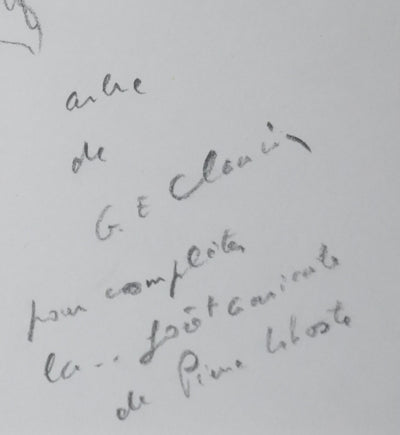 arbre
de
G. E Clancier
pour compléter
la... forêt amicale
de Pierre Lhoste